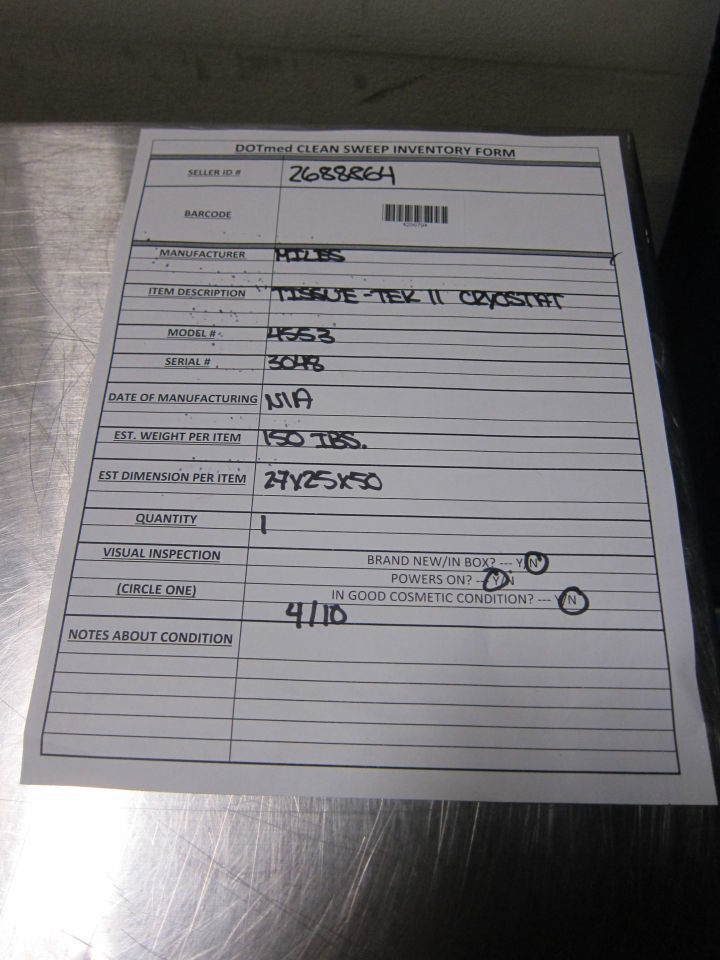 DOTmed CLEAN SWEEP INVENTORY FORM
SELLER ID # 2688864
BARCODE
MANUFACTURER MILES
ITEM DESCRIPTION TISSUE-TEK II CRYOSTAT
MODEL # 4553
SERIAL # 3048
DATE OF MANUFACTURING N/A
EST. WEIGHT PER ITEM 150 IBS.
EST DIMENSION PER ITEM 27X25X50
QUANTITY 1
VISUAL INSPECTION BRAND NEW/IN BOX? --- Y/N
POWERS ON? --- Y/N
(CIRCLE ONE) IN GOOD COSMETIC CONDITION? --- Y/N
4/10
NOTES ABOUT CONDITION